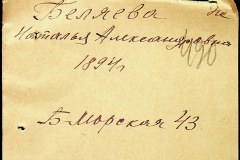 Беляева
Наталья Александровна
1894 г
Б. Морская 43